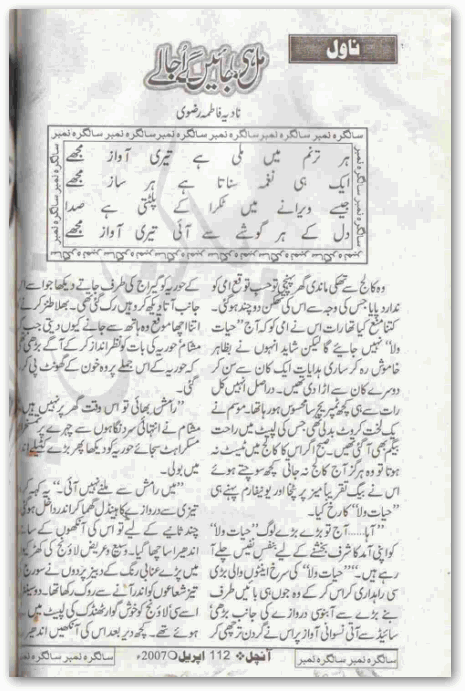 ناول
مل ہی جائیں گے اُجالے
نادیہ فاطمہ رضوی
سالگرہ نمبر سالگرہ نمبر سالگرہ نمبر سالگرہ نمبر سالگرہ نمبر سالگرہ نمبر
ہر ترنم میں ملی ہے تیری آواز مجھے
ایک ہی نغمہ سناتا ہے ہر ساز مجھے
جیسے ویرانے میں ٹکرا کے پلٹتی ہے صدا
دل کے ہر گوشے سے آئی تیری آواز مجھے
وہ کالج سے تھکی ماندی گھر پہنچی تو حسب توقع امی کو
ندارد پایا جس کی وجہ سے اس کی تھکن دو چند ہو گئی۔
کتنا منع کیا تھا رات اس نے امی کو کہ آج ”حیات
ولا“ نہیں جائیے گا لیکن شاید انہوں نے بظاہر
خاموش رہ کر ساری ہدایات ایک کان سے سن کر
دوسرے کان سے اڑا دی تھیں۔ دراصل انہیں کل
رات سے ہی کچھ ٹمپریچر سا محسوس ہو رہا تھا۔ موسم نے
یک لخت کروٹ بدلی تھی جس کی لپیٹ میں راحت
بیگم بھی آ گئی تھیں۔ صبح اگر اس کا کالج میں ٹیسٹ نہ
ہوتا تو وہ ہرگز آج کالج نہ جاتی کچھ سوچتے ہوئے
اس نے بیگ تقریباً میز پر پٹخا اور یونیفارم پہنے ہی
”حیات ولا“ کا رخ کیا۔
”آہا.....آج تو بڑے بڑے لوگ ”حیات ولا“
کو اپنی آمد کا شرف بخشنے کے لیے بنفس نفیس چلے آ
رہے ہیں۔“ ”حیات ولا“ کی سرخ اینٹوں والی بڑی
سی راہداری کراس کر کے وہ جوں ہی بائیں طرف
بنے بڑے سے آبنوسی دروازے کی جانب بڑھی
سائیڈ سے آتی نسوانی آواز پر اس نے گردن ترچھی کر
کے حوریہ کو گیراج کی طرف جاتے دیکھا جو اسے اس
جانب آتا دیکھ کر وہیں رک گئی تھی۔ بھلا طنز کرنے کا
اتنا اچھا موقع وہ ہاتھ سے جانے کیوں دیتی جب کہ
مشام حوریہ کی بات کو نظر انداز کر کے آگے بڑھی
کہ حوریہ کے اس جملے پر وہ خون کے گھونٹ پی کر
گئی۔
”رامش بھائی تو اس وقت گھر پر نہیں ہیں
مشام نے انتہائی سرد نگاہوں سے چہرے پر تمسخر
مسکراہٹ سجائے حوریہ کو دیکھا پھر بڑے کٹیلے
میں بولی۔
”میں رامش سے ملنے نہیں آئی۔“ یہ کہہ کر
تیزی سے دروازے کا ہینڈل گھما کر اندر داخل ہو گئی
چند ثانیے کے لیے تو اس کی آنکھوں کے سامنے
اندھیرا سا چھا گیا۔ وسیع و عریض لاؤنج کی کھڑکیوں
میں پڑے عنابی رنگ کے دبیز پردوں نے سورج کی
تیز شعاعوں کو اندر آنے سے روک رکھا تھا۔
اے سی لاؤنج کو خوش گوار ٹھنڈک کی لپیٹ میں لیے
ہوئے تھے۔ کچھ دیر بعد اس کی آنکھیں اندھیرے
سالگرہ نمبر سالگرہ نمبر
آنچل ❖ 112 اپریل ❖ 2007ء
سالگرہ نمبر سالگرہ نمبر